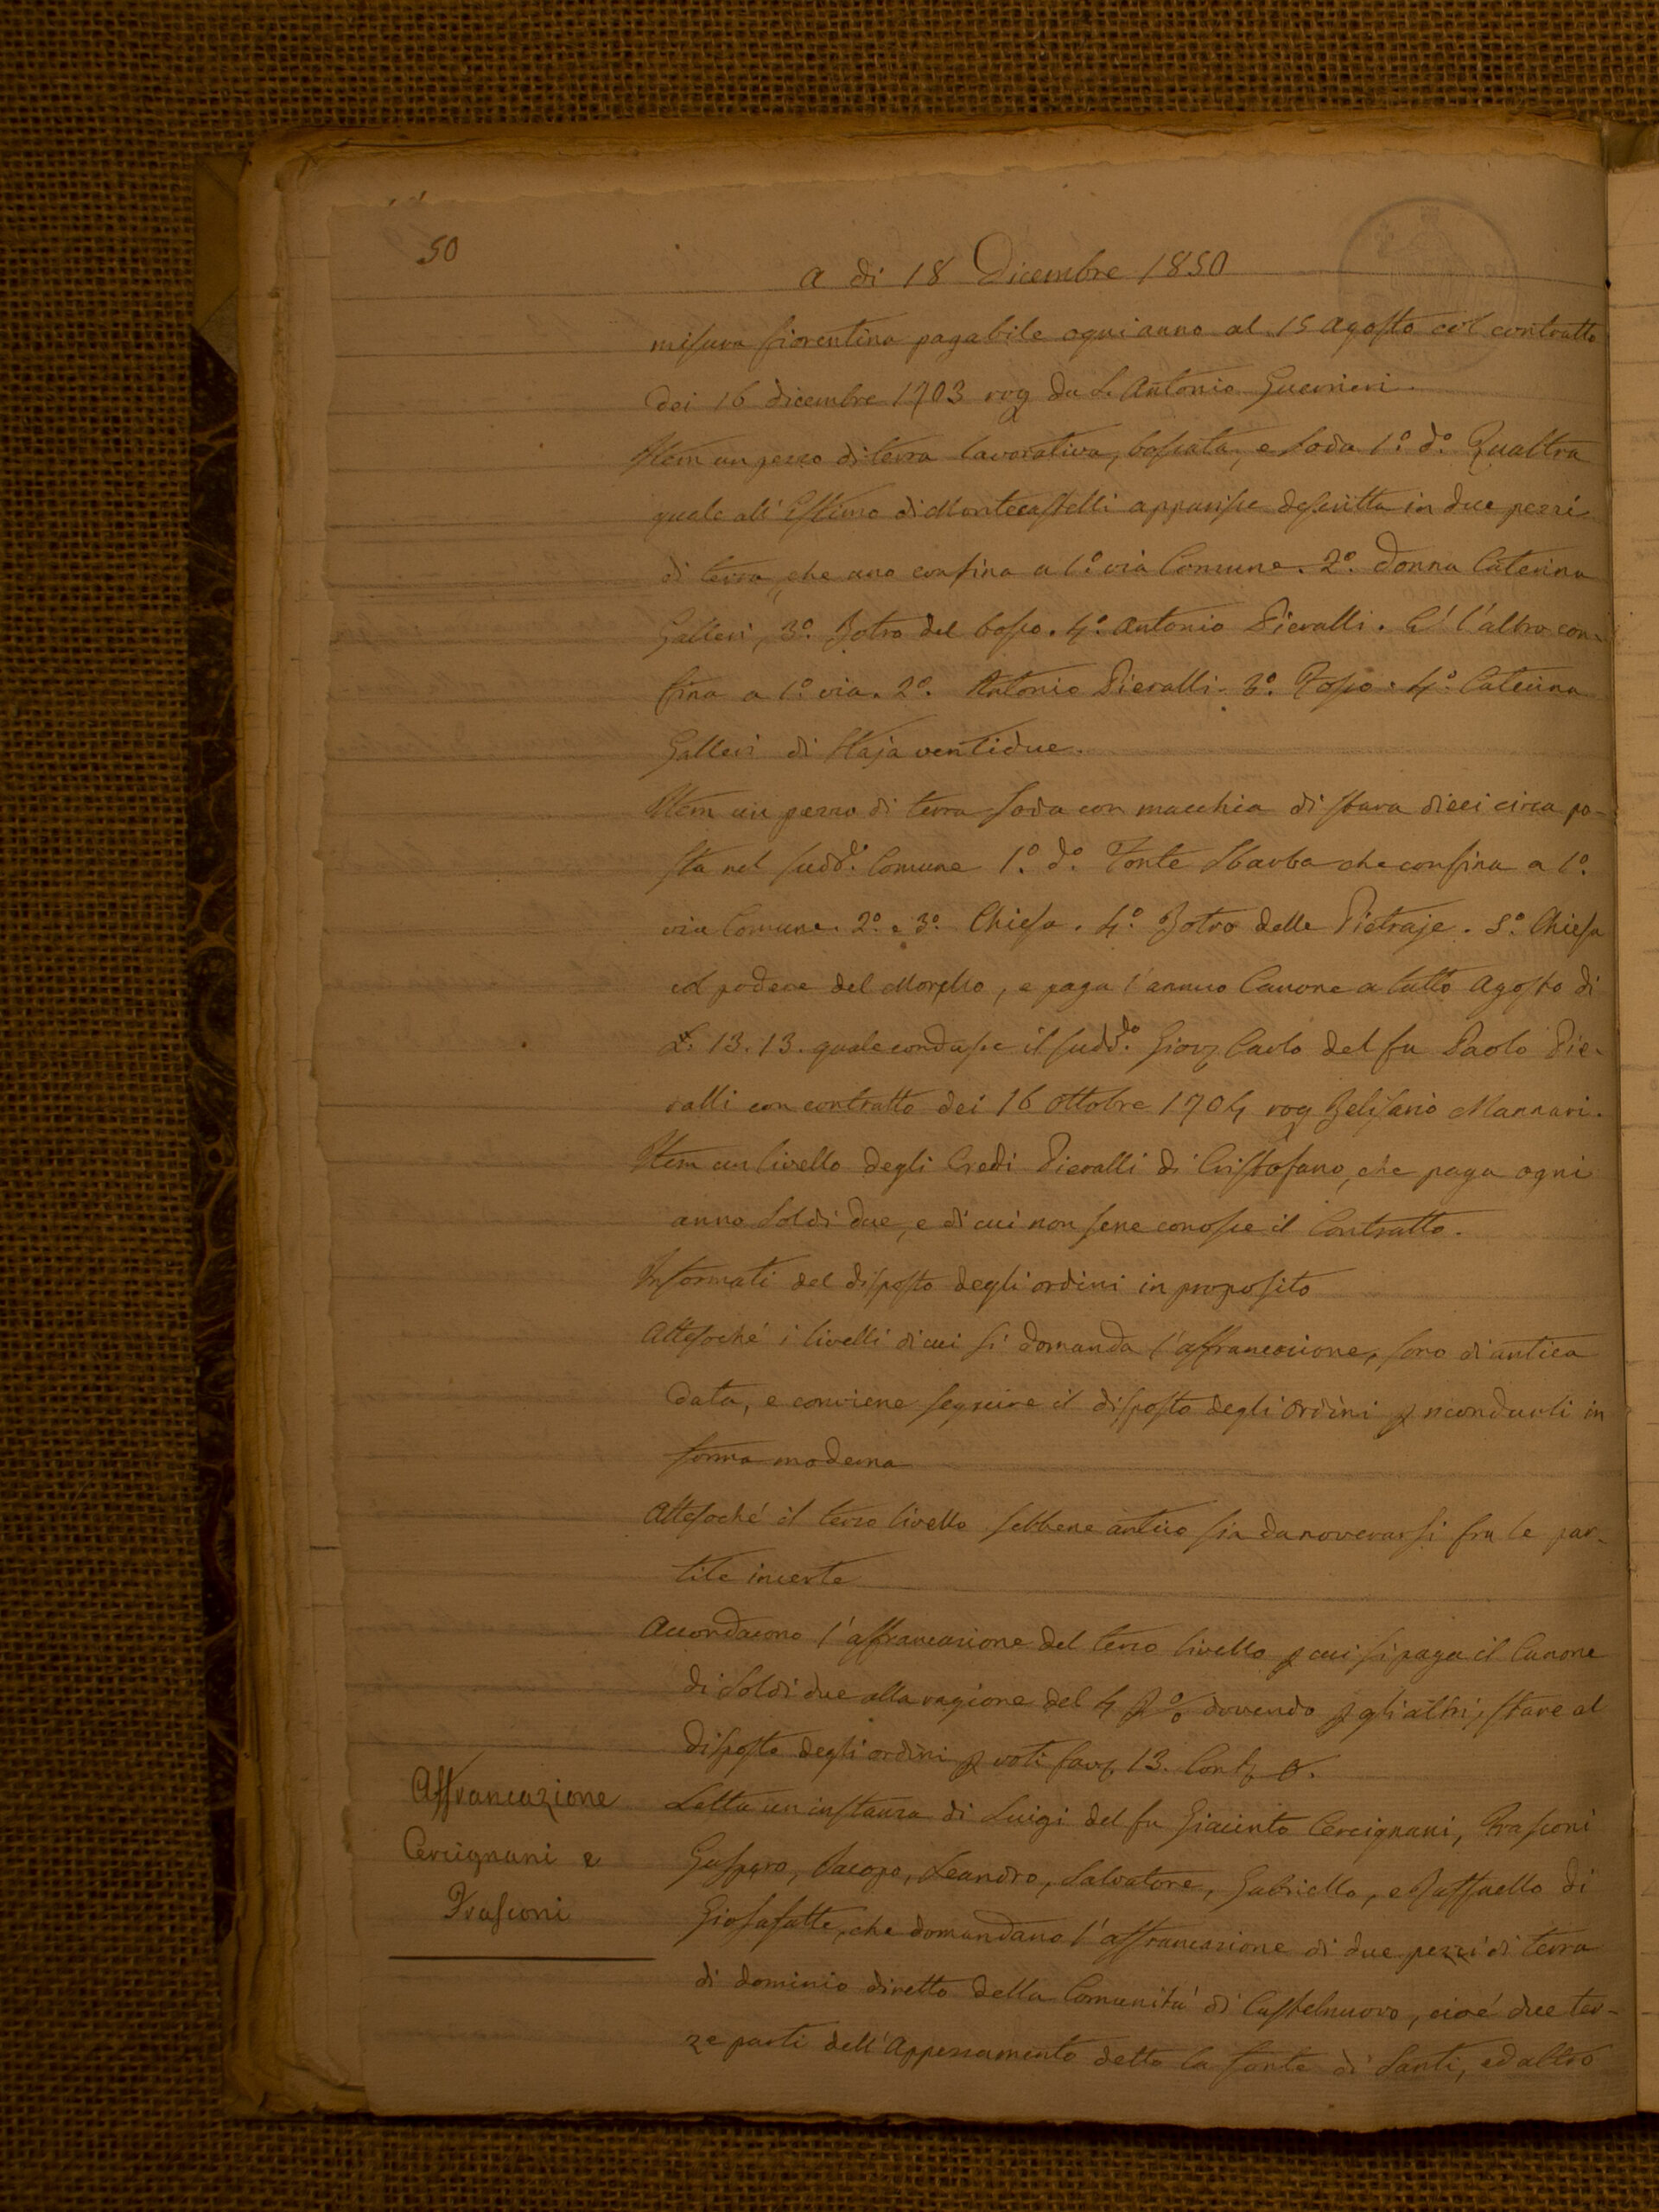 50
a di 18 Dicembre 1850
misura fiorentina pagabile ogni anno al 15 Agosto col contratto
dei 16 dicembre 1703 rog da S. Antonio Guerrieri.
Item un pezzo di terra lavorativa, boscata, e soda l.º d.º Qualtra
quale all' Estimo di Montecastelli apparisce descritta in due pezzi
di terra, che uno confina a 1.º via Comune. 2.º Donna Caterina
Galleri, 3.º Botro del bosco. 4.º Antonio Pieralli. E l'altro con-
fina a 1.º via. 2.º Antonio Pieralli. 3.º Fosso. 4.º Caterina
Galleri di staja ventidue.
Item un pezzo di terra soda con macchia di stara dieci circa po-
sta nel sudd.º Comune l.º d.º Fonte Sbarba che confina a 1.º
via Comune. 2.º e 3.º Chiesa. 4.º Botro delle Pietraje. 5.º Chiesa
col podere del, e paga l'annuo Canone a tutto Agosto di
L. 13.13. quale condusse il sudd.º Giov. Carlo del fu Paolo Pie-
ralli con contratto dei 16 ottobre 1704 rog Belisario Mannari.
Item un livello degli Eredi Pieralli di Cristofano, che paga ogni
anno Soldi due, e di cui non sene conosce il Contratto.
Informati del disposto degli ordini in proposito
Attesoché i livelli di cui si domanda l'affrancazione, sono di antica
data, e conviene seguire il disposto degli ordini p ricondurli in
forma moderna
Attesoché il terzo livello sebbene antico sia da noverarsi fra le par-
tite incerte
Accordarono l'affrancazione del terzo livello p cui si paga il Canone
di Soldi due alla ragione del 4 p % dovendo p gli altri, stare al
disposto degli ordini p voti fav. 13. Cont. 0.
Letta un instanza di Luigi del fu Giacinto Cercignani, Frasconi
Gaspero, Jacopo, Leandro, Salvatore, Gabriello, e Raffaello di
Giosafatte, che domandano l'affrancazione di due pezzi di terra
di dominio diretto della Comunità di Castelnuovo, cioé due ter-
ze parti dell'Appezzamento detto la fonte di Santi, ed altro
Affrancazione
Cercignani e
Frasconi